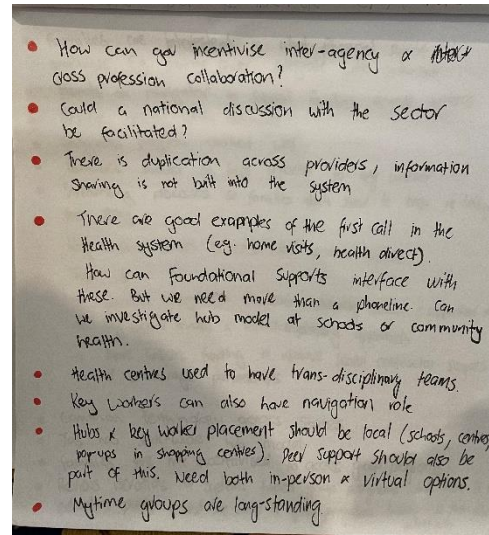 • How can gov incentivise inter-agency &
cross profession collaboration?
• Could a national discussion with the sector
be facilitated?
• There is duplication across providers, information
sharing is not built into the system
• There are good examples of the first call in the
Health system (eg. home visits, health direct).
How can Foundational Supports interface with
these. But we need more than a phoneline. Can
we investigate hub model at schools or community
health.
• Health centres used to have trans-disciplinary teams.
• Key Workers can also have navigation role
• Hubs & key worker placement should be local (schools, centres,
pop-ups in shopping centres). Peer support should also be
part of this. Need both in-person & virtual options.
• Mytime groups are long-standing